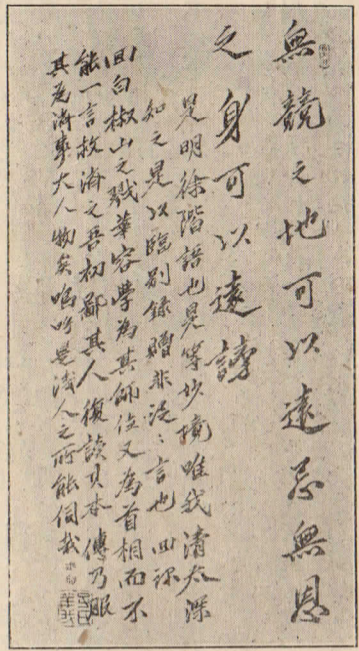 無競之地可以遠忌無恩
之身可以遠謗
是明徐階語也是等妙境唯我清太深
知之是以臨別錄贈非泛々言也回
回白椒山之戮華容學為其師位又為首相而不
能一言救濟之吾初鄙其人復談其本傳乃服
其是濟事大人物矣嗚呼是淺人之所能伺哉